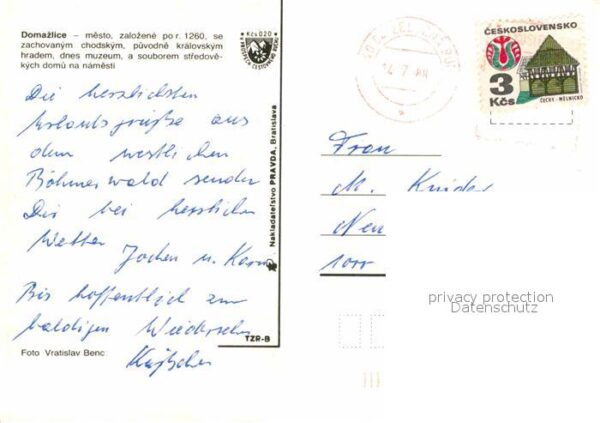 Domažlice – město, založené po r. 1260, se
zachovaným chodským, původně královským
hradem, dnes muzeum, a souborem středově-
kých domů na náměstí
Kčs 0.20
Die herzlichsten
Urlaubsgrüße aus
dem westlichen
Böhmerwald sendet
Dir bei herrlichem
Wetter
Jochen u. Karin
Bis hoffentlich zum
baldigen Wiedersehen
Foto Vratislav Benc
Nakladateľstvo PRAVDA, Bratislava
TZR-B
ČESKOSLOVENSKO
3
Kčs
ČECHY-MĚLNICKO
Frau
M.
Neu
1000
privacy protection
Datenschutz